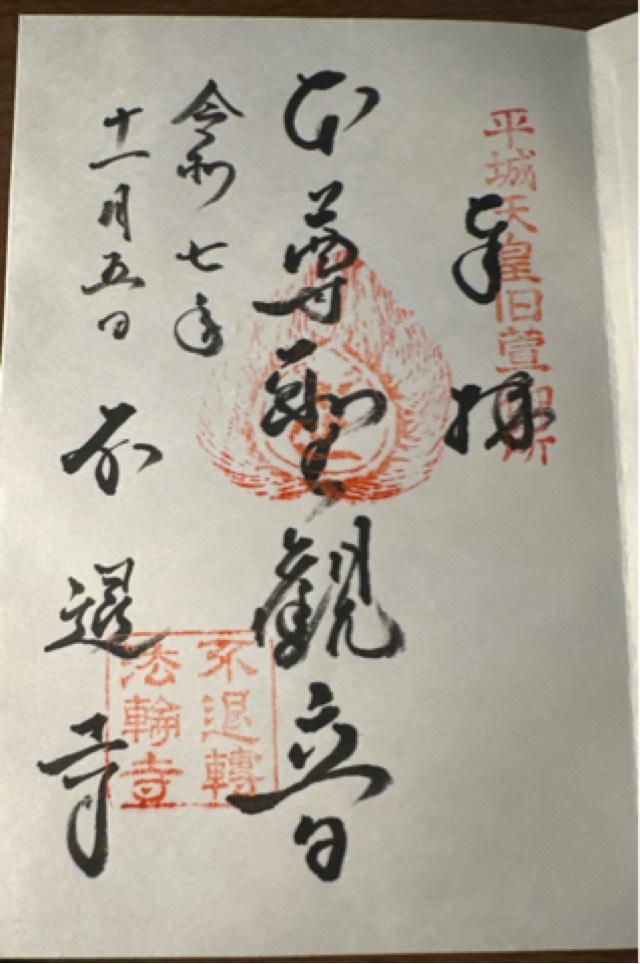 平城天皇旧萱御所
奉拝
本尊聖觀音
令和七年
十一月五日
不退寺
不退轉
法輪寺